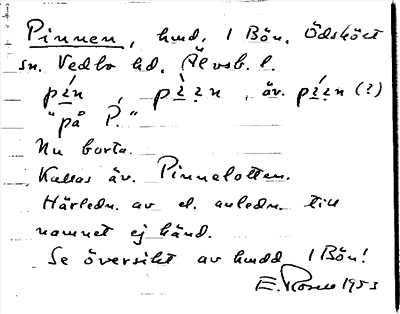 Pinnen, hmd. 1 Bön, Ödskölt
sn. Vedbo hd. Älvsb. l.
pi̱n, pì̱ẓn, äv. pí̱ẓn (?)
"på P."
Nu borta.
Kallas äv. Pinnelotten.
Härledn. av el. anledn. till
namnet ej känd.
Se översikt av hmdd 1 Bön!
E. Rosell 1953